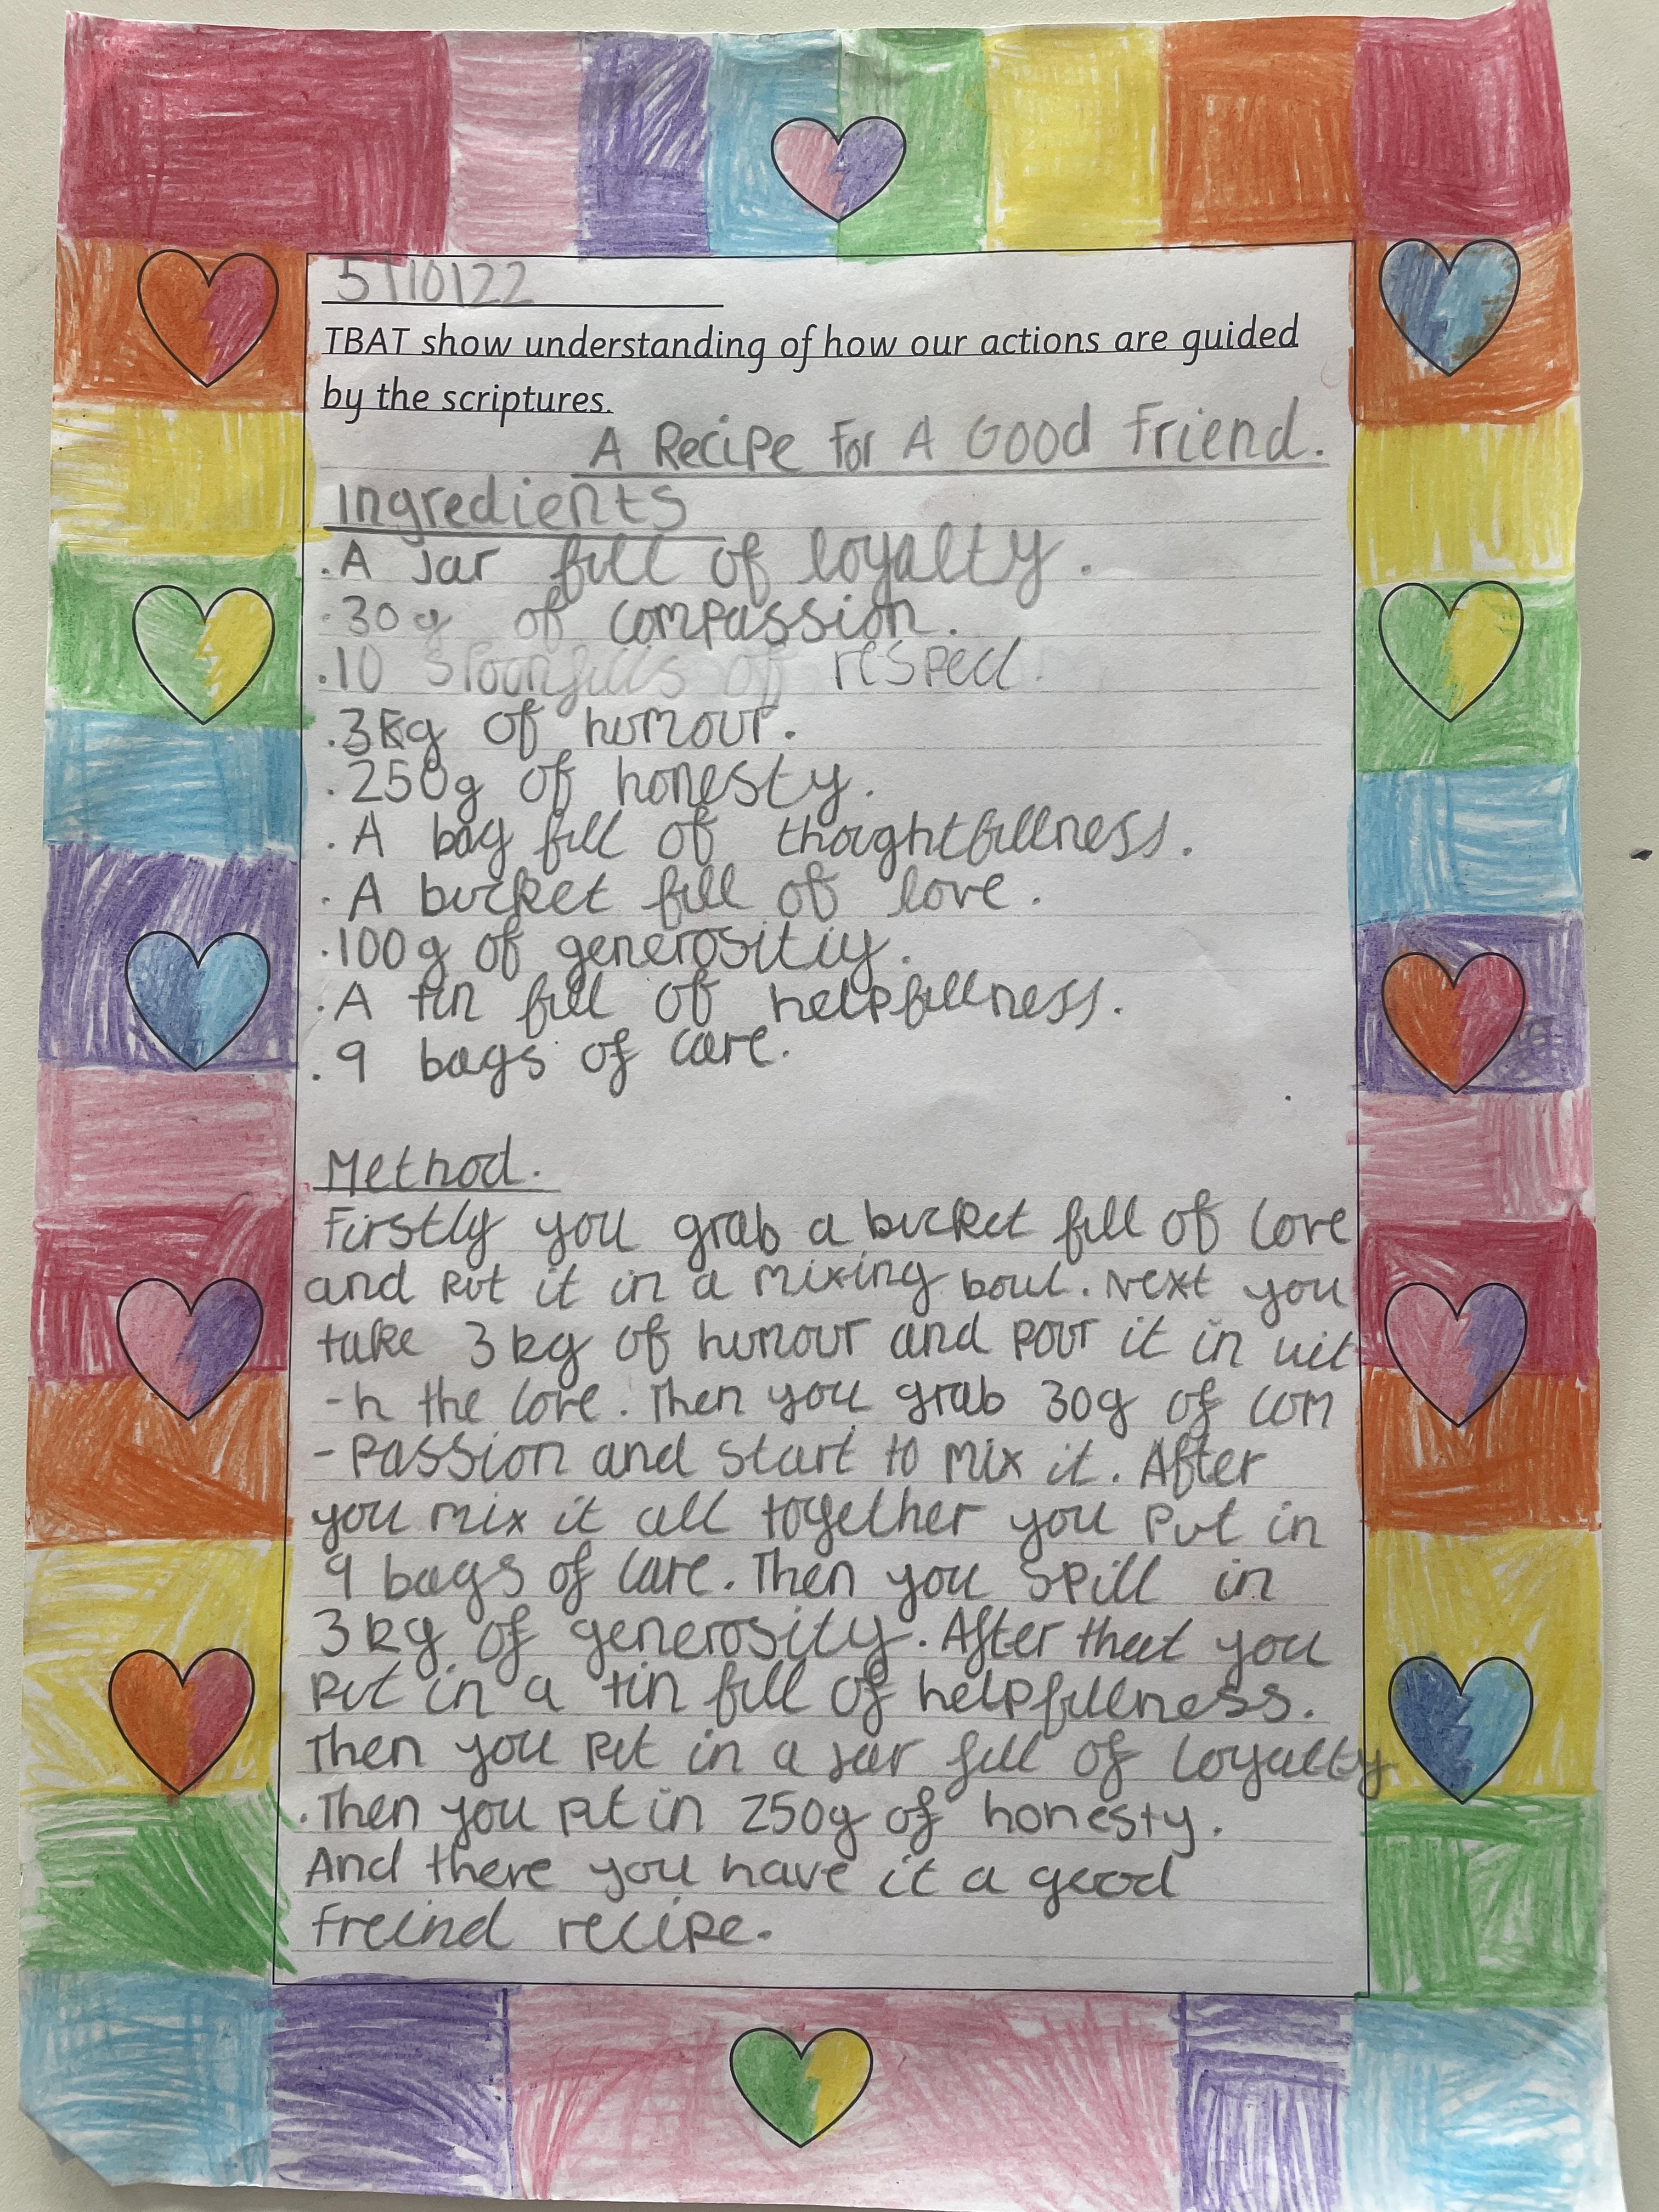 5/10/22
TBAT show understanding of how our actions are guided
by the scriptures.
A Recipe For A Good Friend.
Ingredients
. A Jar full of loyalty.
. 30g of compassion.
. 10 Spoonfulls of respect.
. 3kg of humour.
. 250g of honesty.
. A bag full of thoughtfullness.
. A bucket full of love.
. 100g of generositiy.
. A tin full of helpfullness.
. 9 bags of care.
Method.
Firstly you grab a bucket full of love
and put it in a mixing boul. Next you
take 3kg of humour and pour it in wit
-h the love. Then you grab 30g of com
-passion and start to mix it. After
you mix it all together you put in
9 bags of care. Then you spill in
3kg of generosity. After that you
put in a tin full of helpfullness.
Then you put in a Jar full of loyalty
. Then you put in 250g of honesty.
And there you have it a good
Freind recipe.